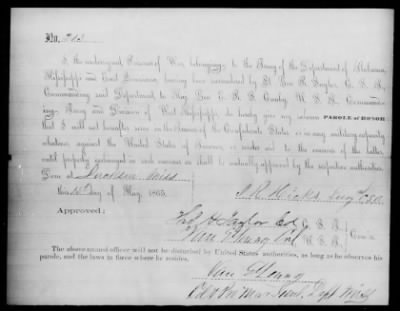 No. 
I, the undersigned Prisoner of War, belonging to the Army of the Department of Alabama,
Mississippi and East Louisiana, having been surrendered by Lt. Gen. R. Taylor, C. S. A.,
Commanding said Department, to Maj. Gen. E. R. S. Canby, U. S. A., Command-
ing Army and Division of West Mississippi, do hereby give my solemn PAROLE OF HONOR
that I will not hereafter serve in the Armies of the Confederate States, or in any military capacity
whatever, against the United States of America, or render aid to the enemies of the latter,
until properly exchanged in such manner as shall be mutually approved by the respective authorities.
Done at Jackson Miss
this day of May, 1865.
Hicks
Approved:
Taylor Col C. S. A.
U. S. A.
The above named officer will not be disturbed by United States' authorities, as long as he observes his
parole, and the laws in force where he resides.